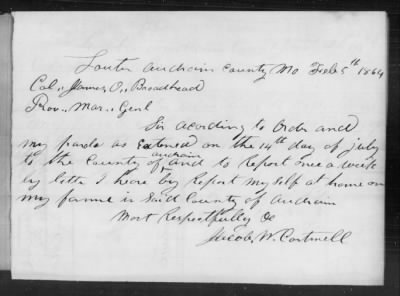 Audrain County Mo Feb 5th 1864
Col., James, O., Broadhead
Prov., Mar., Genl
Sir acording to order and
my parole as Extened on the 14th day of july
to the County of Audrain and to Report once a week
by letter I heare by Report my self at home on
my farme in Said County of Audrain
Most Respectfully
Jacob, W. Cartmell